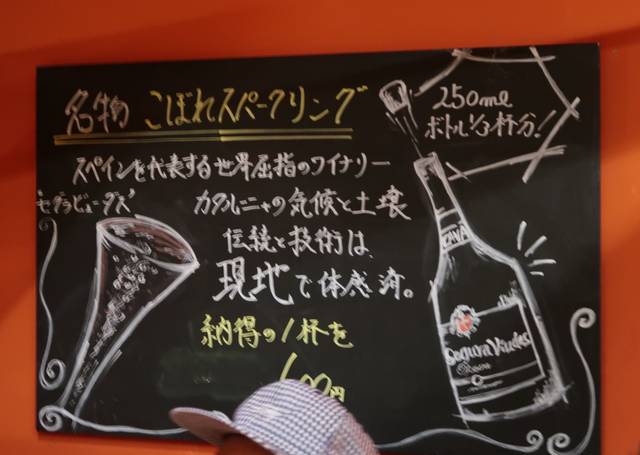 名物 こぼれスパークリング
250ml
ボトル1/3杯分!
スペインを代表する世界屈指のワイナリー
"セグラビューダス"
カタルニャの気候と土壌
伝統と技術は、
現地で体感済。
納得の1杯を
円
CAVA
Segura Viudas